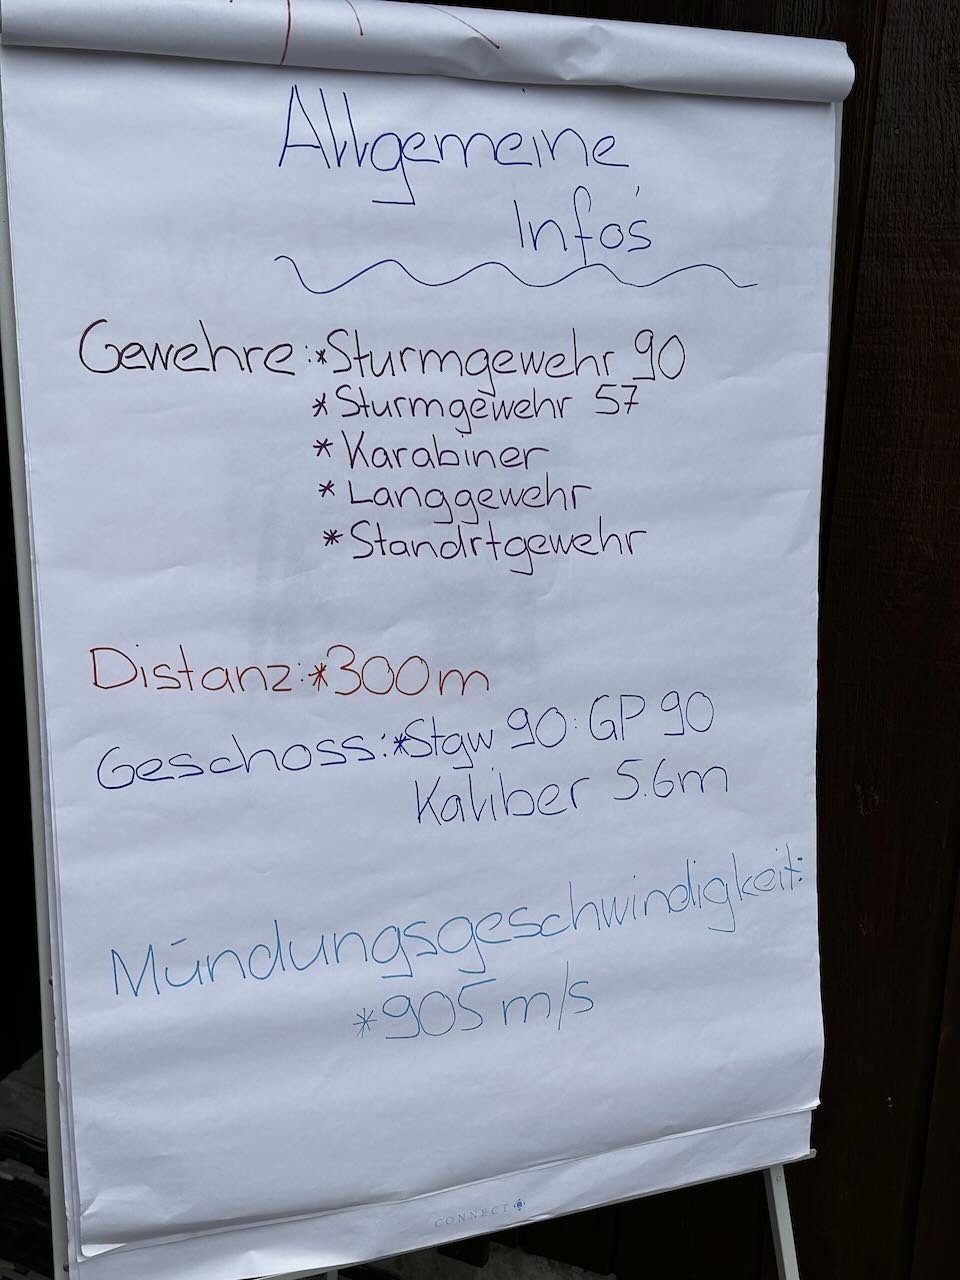 Allgemeine
Info's
Gewehre: *Sturmgewehr 90
* Sturmgewehr 57
* Karabiner
* Langgewehr
* Standrtgewehr
Distanz: *300m
Geschoss: *Stgw 90: GP 90
Kaliber 5.6m
Mündungsgeschwindigkeit:
*905 m/s
CONNECT